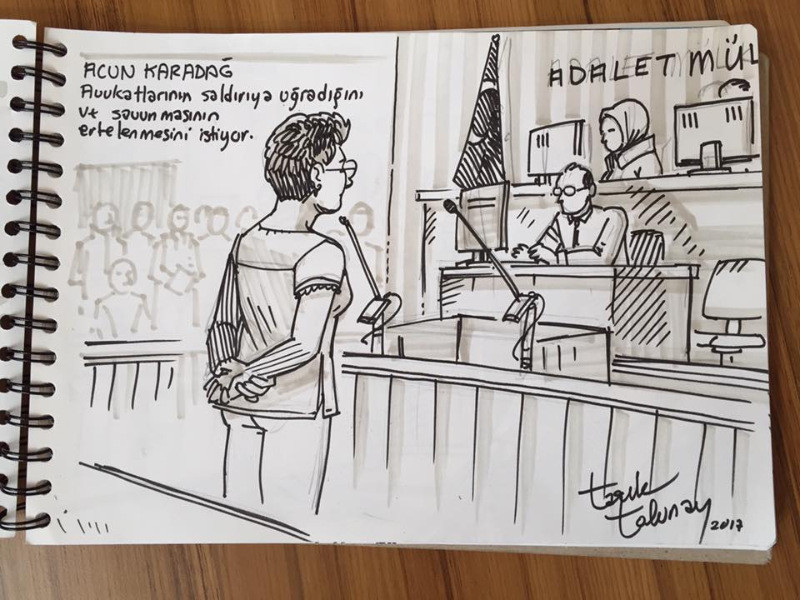 ACUN KARADAĞ
Avukatlarının saldırıya uğradığını
ve savunmasının
ertelenmesini istiyor.
ADALET MÜL
tarık
tolunay
2017